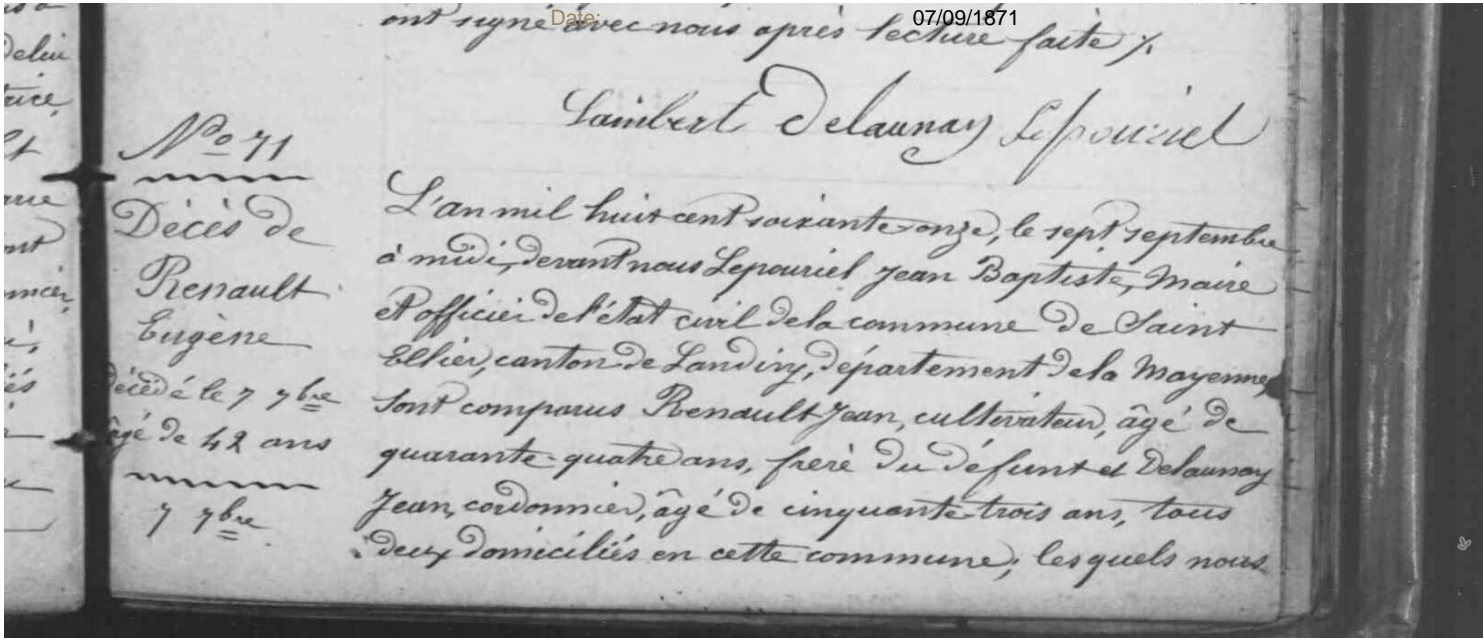 ont signé avec nous après lecture faite %.
Date:
07/09/1871
Lambert Delaunay Lepouriel
Nº 71
Décès de
Renault
Eugène
décédé le 7 7bre
âgé de 42 ans
7 7bre
L'an mil huit cent soixante-onze, le sept septembre
à midi, devant nous Lepouriel Jean Baptiste, Maire
et officier de l'état civil de la commune de Saint
Ellier, canton de Landivy, département de la Mayenne,
sont comparus Renault Jean, cultivateur, âgé de
quarante-quatre ans, frère du défunt et Delaunay
Jean, cordonnier, âgé de cinquante-trois ans, tous
deux domiciliés en cette commune; lesquels nous